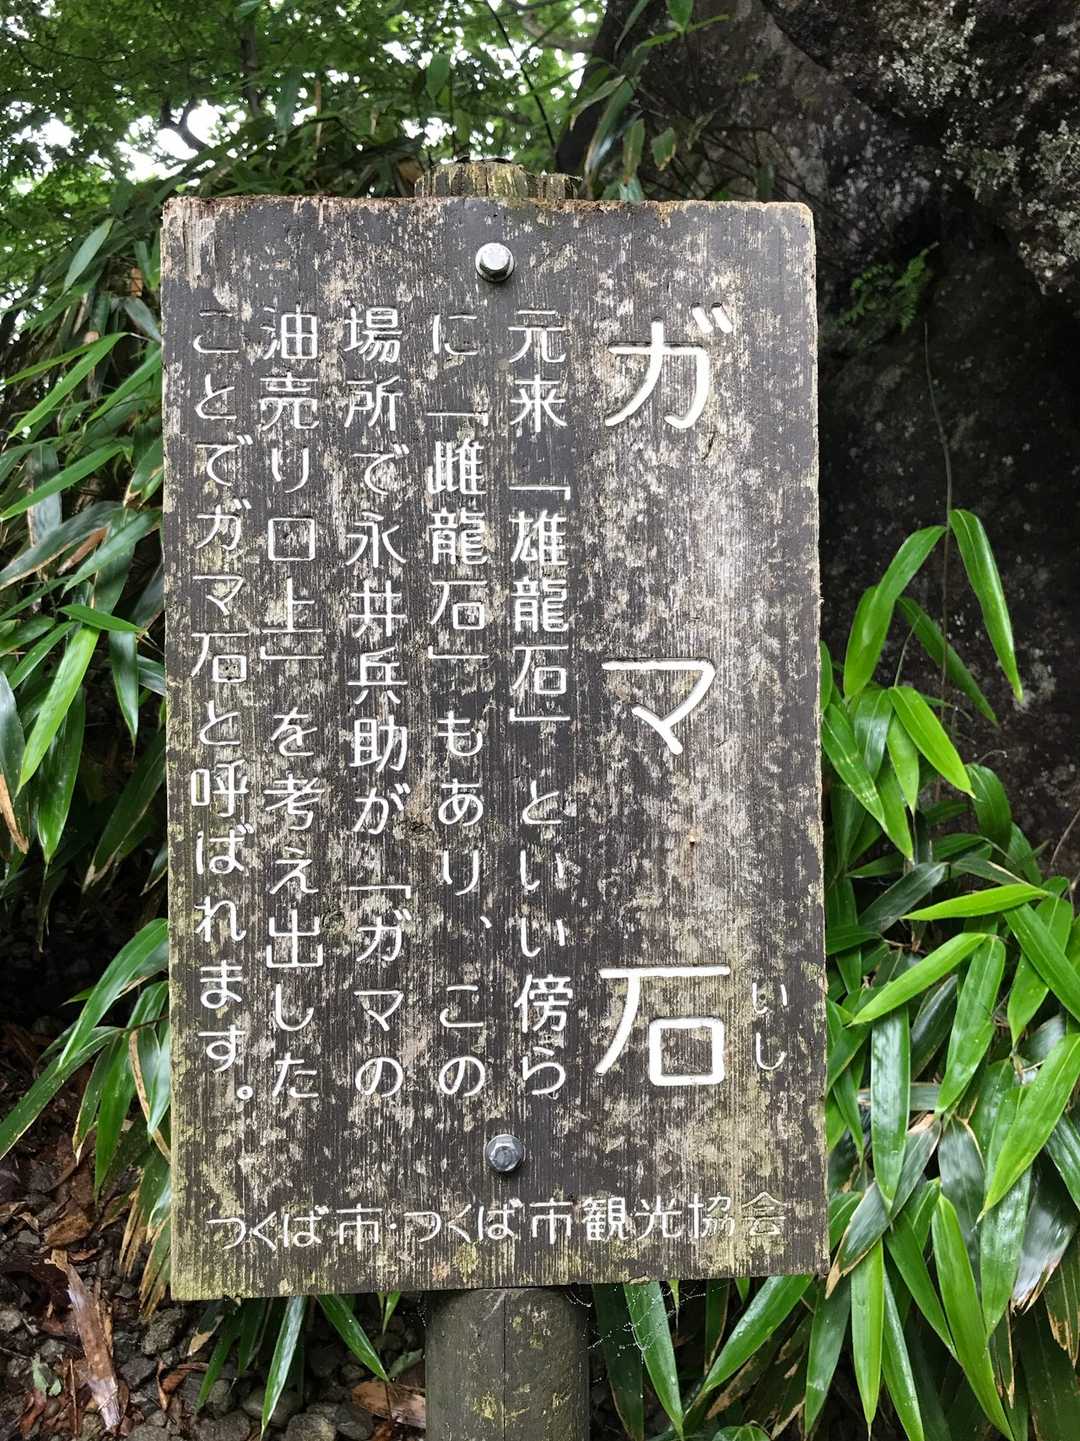 ガマ石
いし
元来「雄龍石」といい傍ら
に「雌龍石」もあり、この
場所で永井兵助が「ガマの
油売り口上」を考え出した
ことでガマ石と呼ばれます。
つくば市・つくば市観光協会